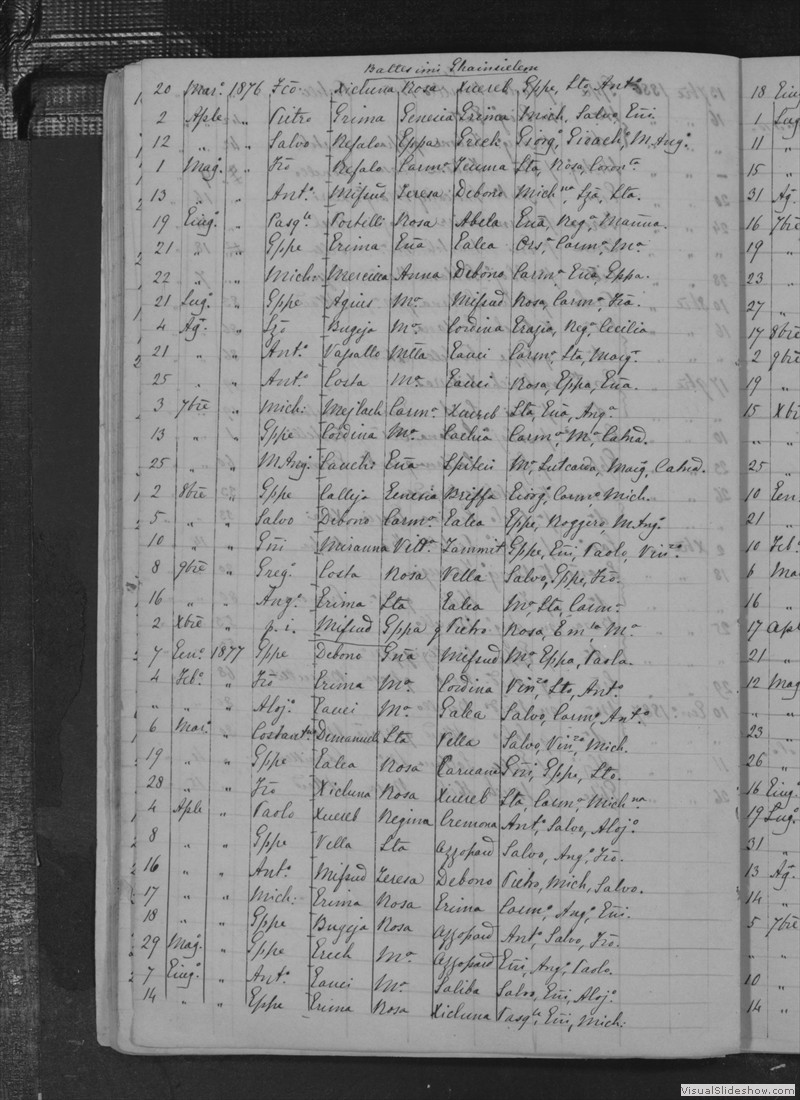 Battesimi Ghainsielem
20 Mar. 1876 Fco Xicluna Rosa Xuereb Gppe, Sto, Ant.
2 Aple " Pietro Grima Generia Grima Mich, Salvo, Eñi
12 " " Salvo Refalo Eppa Grech Giorg, M. Ang.
1 Mag. " Fco Refalo Carm. Sta, Rosa,
13 " " Ant. Mifsud Teresa Debono Mich na, Sta.
19 Giug. " Pasq le Portelli Rosa Abela Eña, Reg.
21 " " Gppe Grima Eña Galea Ors, Carm, M a
22 " " Mich. Mercieca Anna Debono Carm, Eña, Eppa.
21 Lug. " Gppe Agius M a Mifsud Rosa, Carm,
4 Ag. " Bugeja M a Cordina Grazia, Reg, Cecilia
21 " " Ant. Vassallo Gauci Carm, Sta, Marg.
25 " " Ant. Costa M a Gauci Rosa, Eppa, Eña.
3 7bre " Mich. Mejlach Carm. Xuereb Sta, Eña, Ang.
13 " " Gppe Cordina M a Cachia Carm, M a, Catad.
25 " " M. Ang. Eña Spiteri M a, Lutcarda, Marg, Catad.
2 8bre " Gppe Calleja Generia Briffa Giorg, Carm, Mich.
5 " " Salvo Debono Carm. Galea Gppe, Roggero, M. Ang.
10 " " Gñi Vitt. Zammit Gppe, Eñi, Paolo, Vin zo
8 9bre " Greg. Costa Rosa Vella Salvo, Gppe, Fco.
16 " " Ang. Grima Sta Galea M a, Sta, Carm.
2 Xbre " p. i. Mifsud Gppa q Pietro Rosa, M a
7 Gen. 1877 Gppe Debono Gña Mifsud M a, Eppa, Paola.
4 Feb. " Fco Grima M a Cordina Vin zo, Sto, Ant.
" " " Aloj. Gauci M a Galea Salvo, Carm, Ant.
6 Mar. " Costant. Demanuele Sta Vella Salvo, Vin zo, Mich.
19 " " Gppe Galea Rosa Caruana Gñi, Gppe, Sto.
28 " " Fco Xicluna Rosa Xuereb Sta, Carm, Mich na
4 Aple " Paolo Xuereb Regina Cremona Ant, Salvo, Aloj.
8 " " Gppe Vella Sta Azzopard Salvo, Ang, Fco.
16 " " Ant. Mifsud Teresa Debono Pietro, Mich, Salvo.
17 " " Mich. Grima Rosa Grima Carm, Ang, Eñi.
18 " " Gppe Bugeja Rosa Azzopard Ant, Salvo, Fco.
29 Mag. " Gppe Grech M a Azzopard Eñi, Ang, Paolo.
7 Giug. " Ant. Gauci M a Saliba Salvo, Eñi, Aloj.
14 " " Gppe Grima Rosa Xicluna Pasq le, Eñi, Mich.
18 Giu
1 Lug
11 "
15 "
31 Ag.
16 7bre
19 "
23 "
27 "
17 8bre
2 9bre
19 "
15 Xbre
" "
25 "
10 Gen
21 "
10 Feb.
6 Mar
16 "
17 Apl
21 "
12 Mag
" "
23 "
26 "
16 Giug.
19 Lug.
31 "
13 Ag.
14 "
5 7bre
" "
10 "
14 "
VisualSlideshow.com